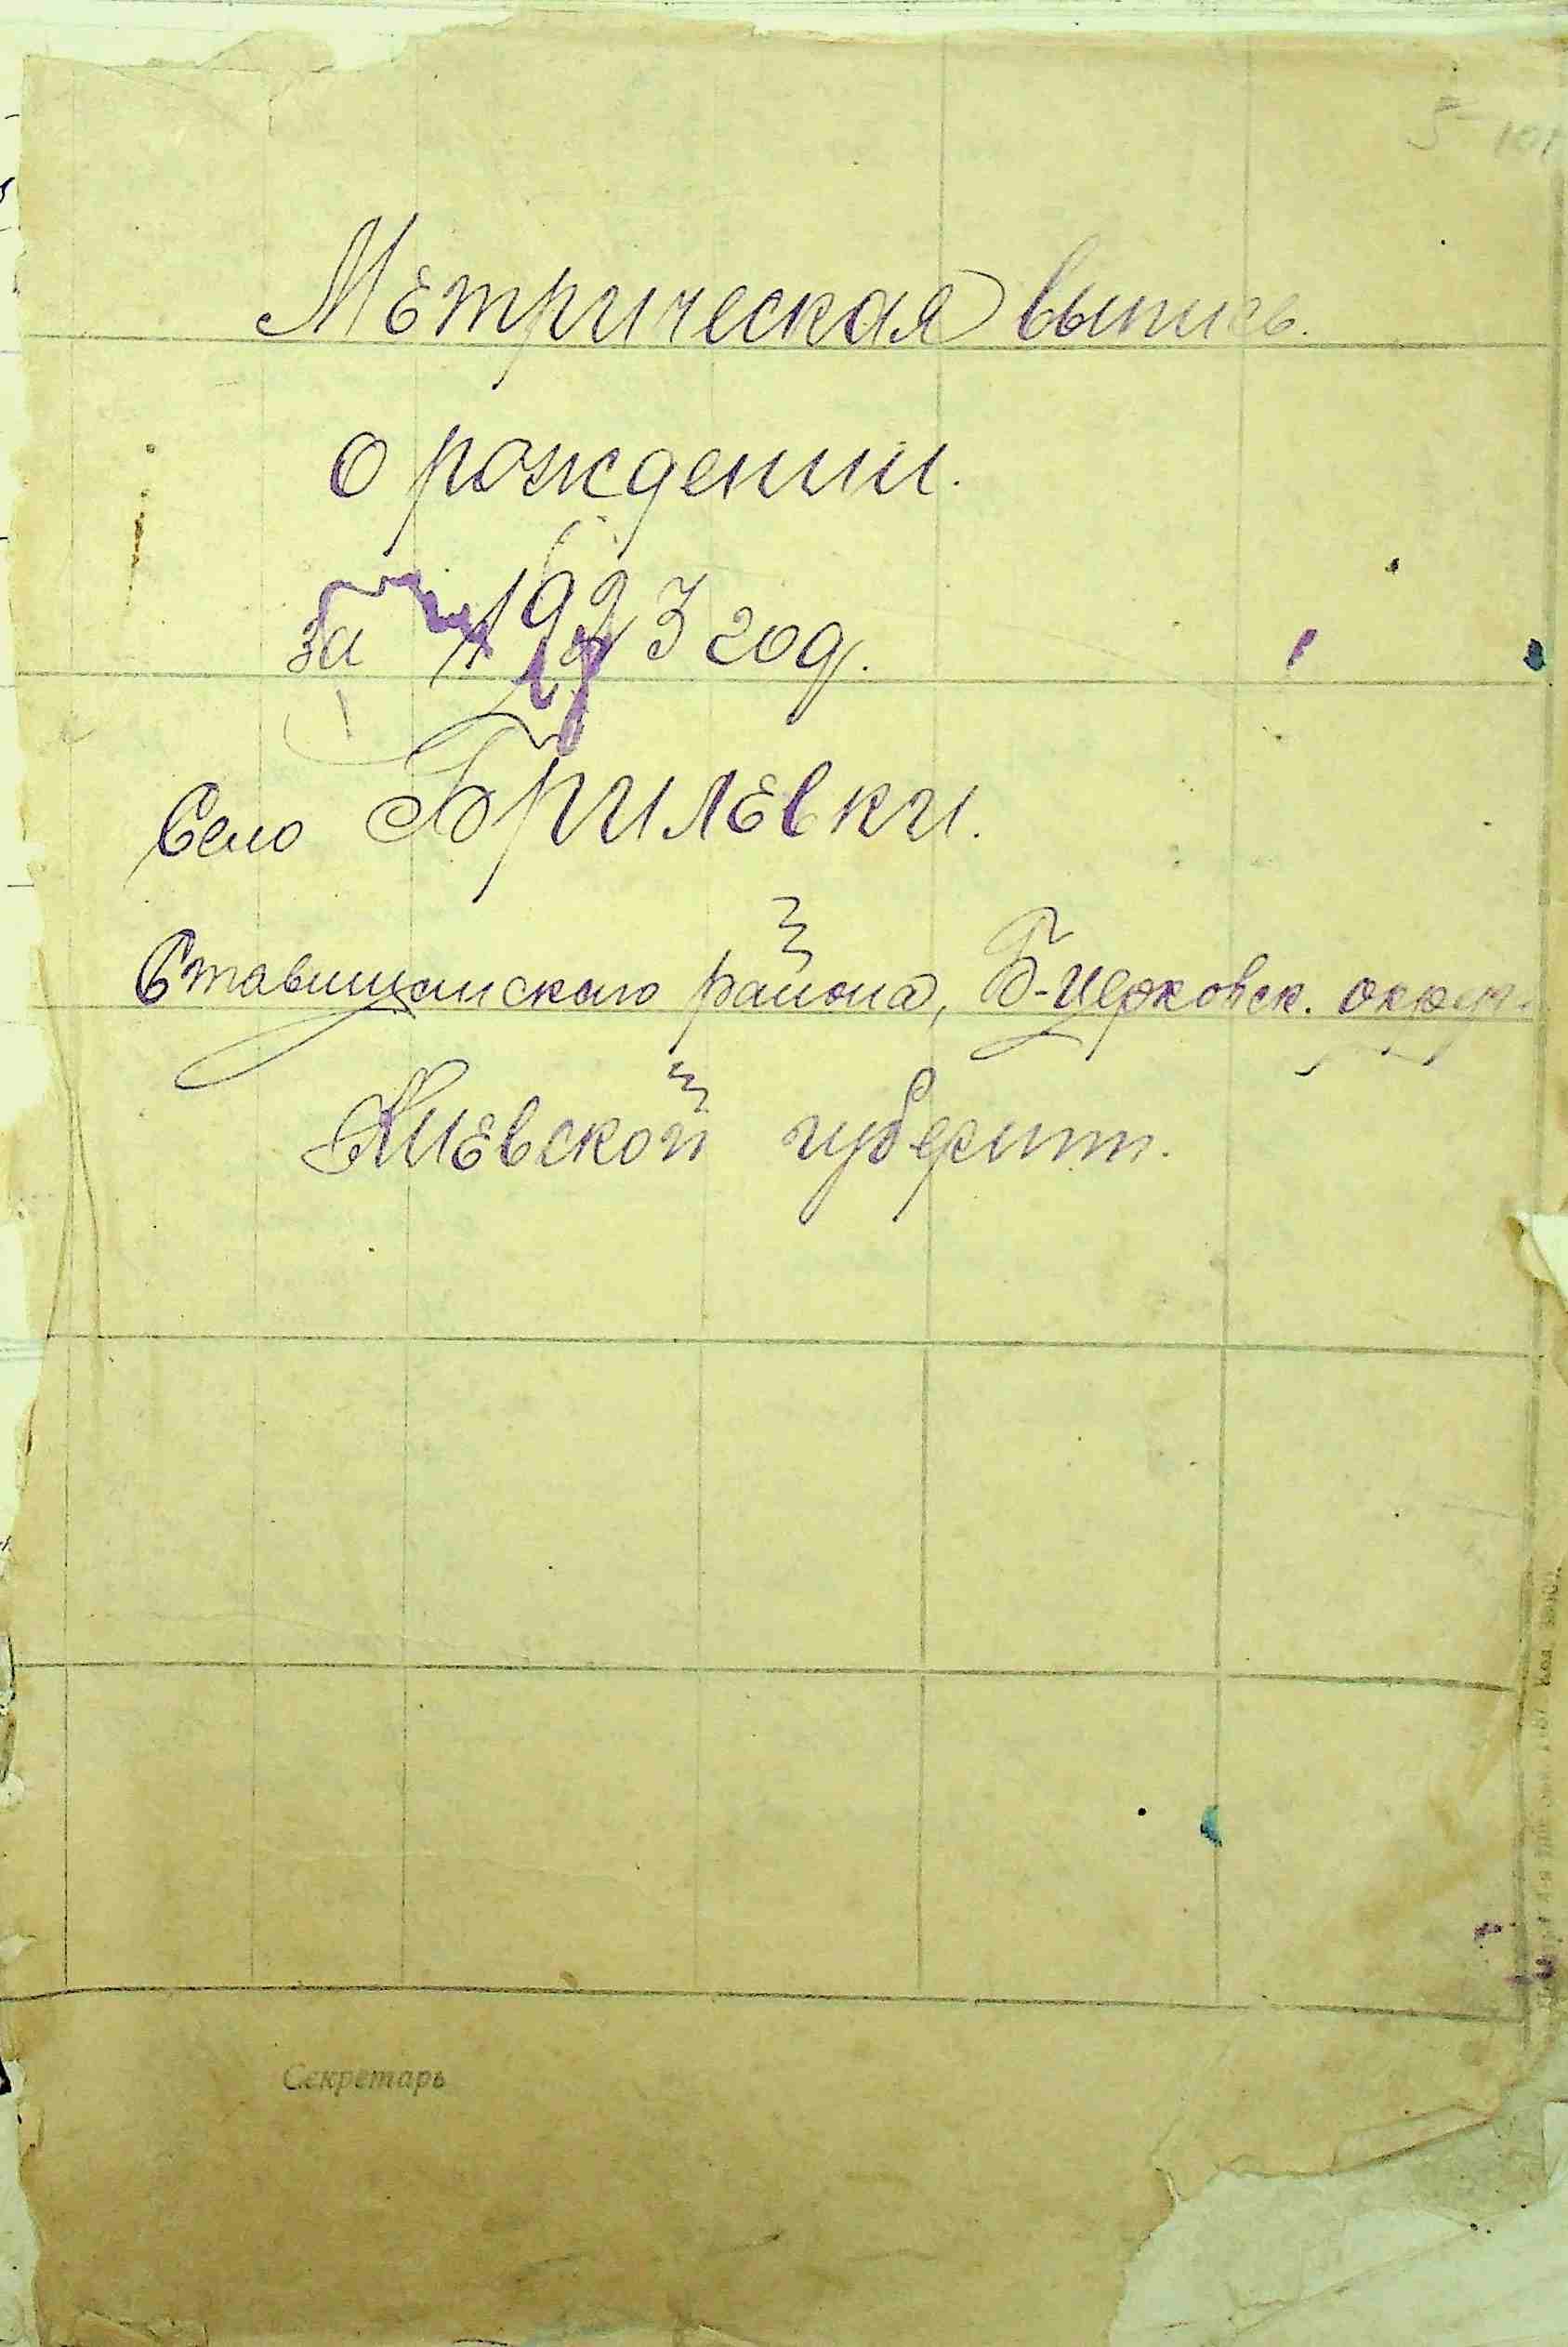 Метрическая выпись.
о рождении.
за 1923 год.
Село Брилевки.
Ставищанского района, Б-Церковск. округ.
Киевской губернии.
Секретарь